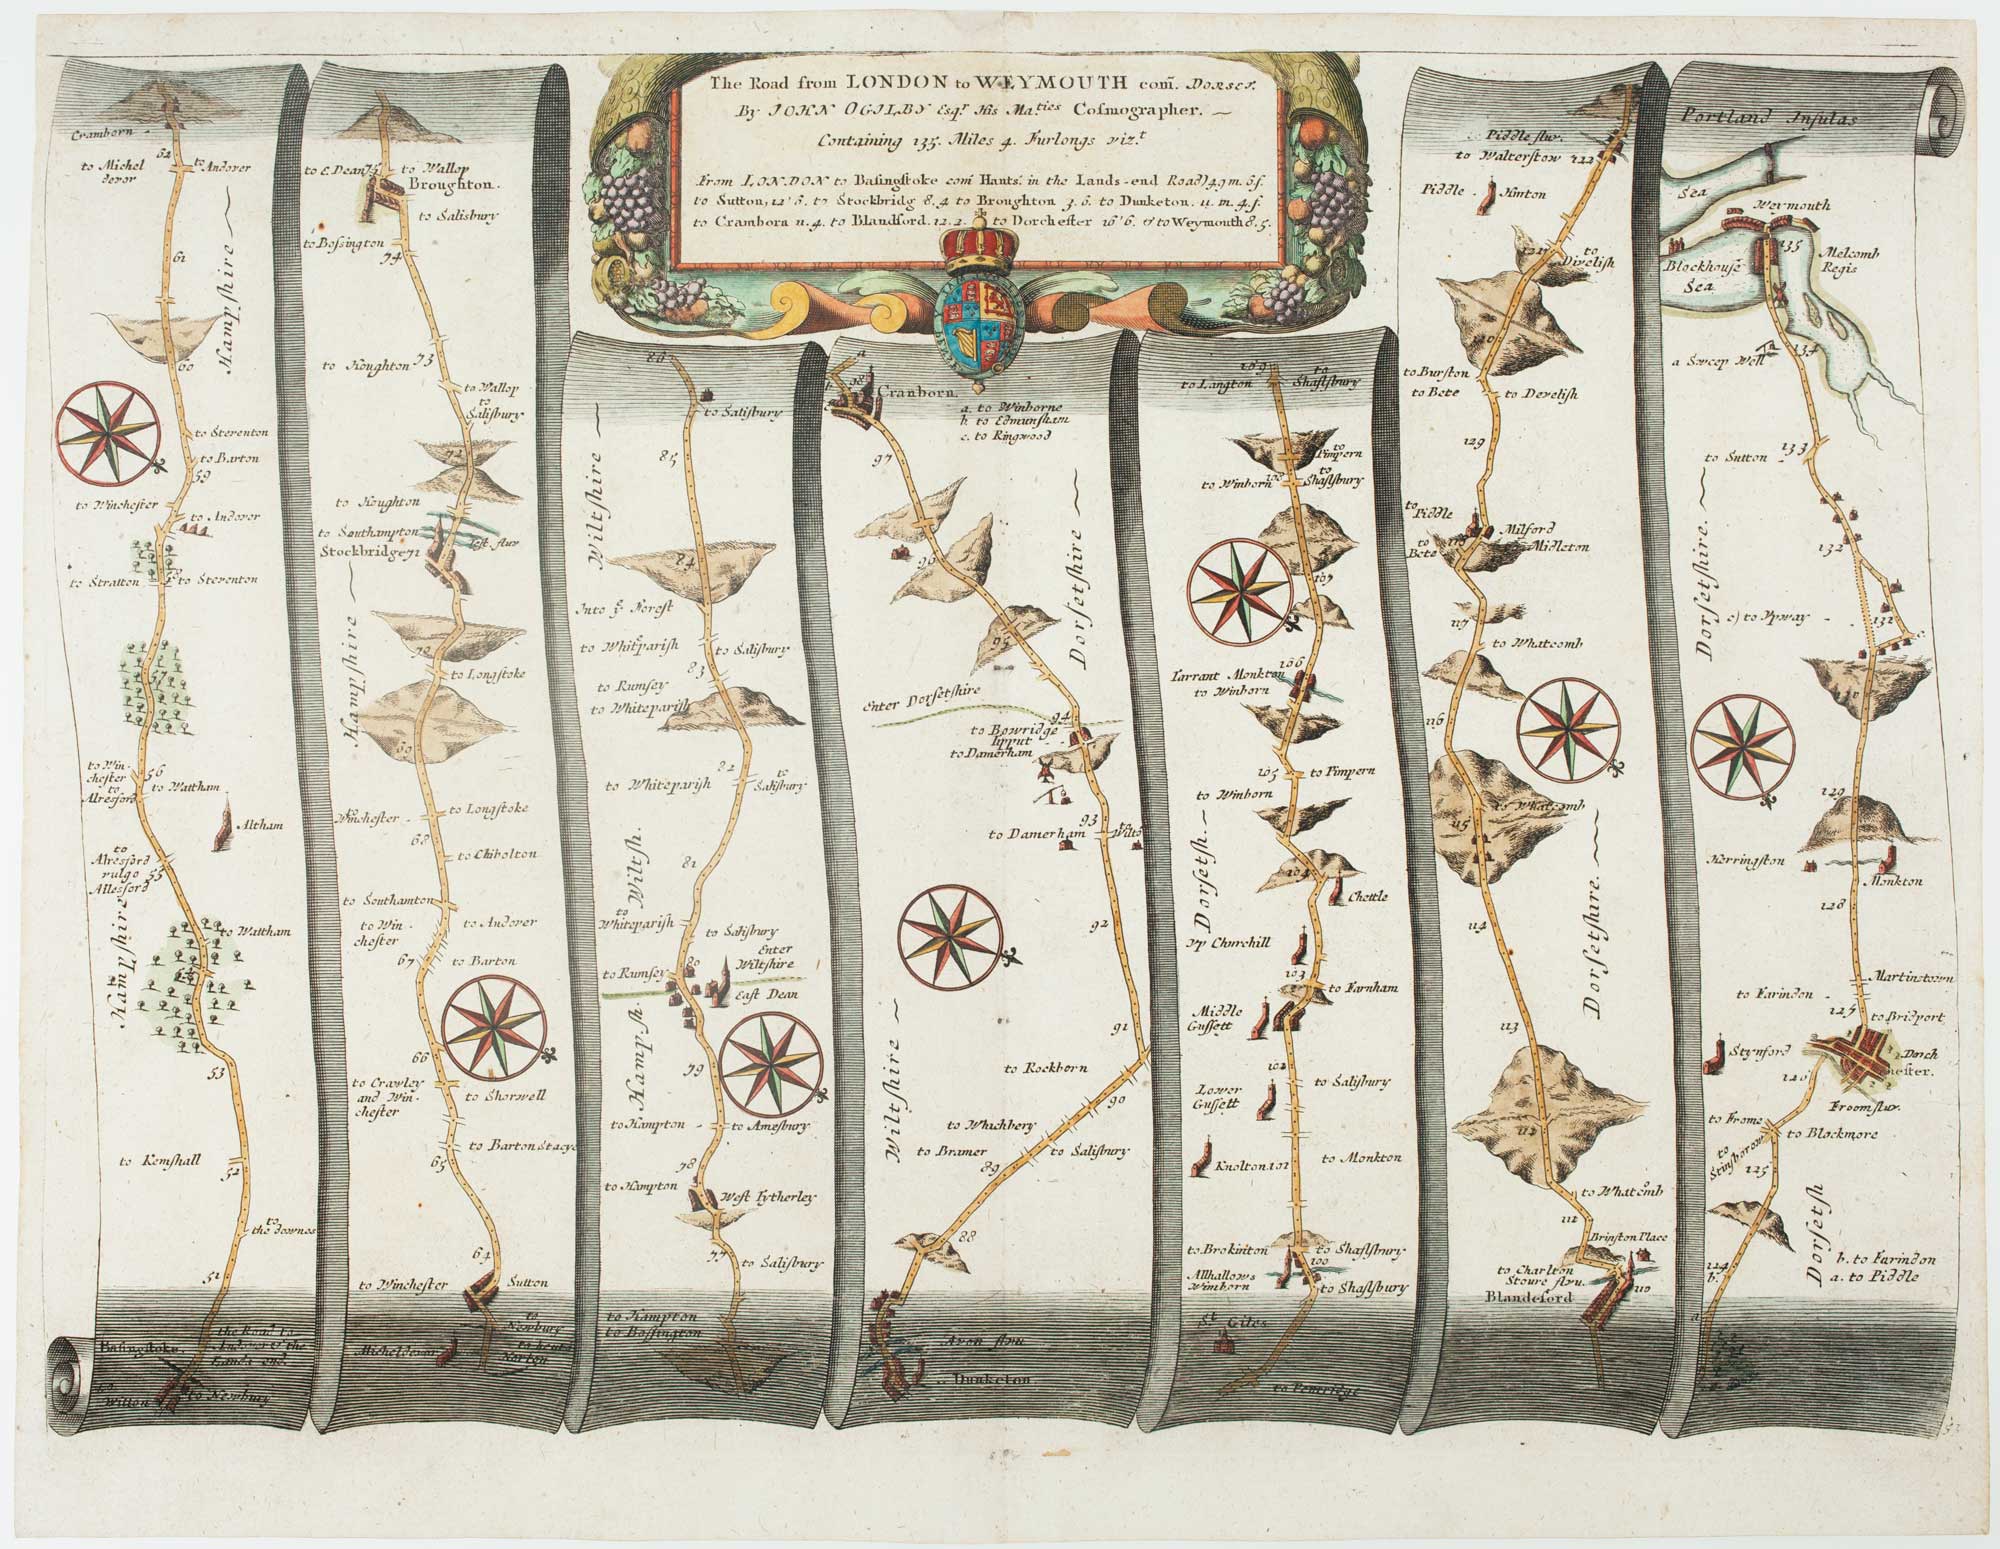 The Road from LONDON to WEYMOUTH com. DORSET.
By JOHN OGILBY Esqr. His Maties Cosmographer.
Containing 135. Miles 4. Furlongs vizt
From LONDON to Basingstoke com Hants. in the Lands-end Road) 49 m. 6 f.
to Sutton, 12'6. to Stockbridg 8.4 to Broughton 3.6. to Dunketon. 11. m. 4. f.
to Cramborn 11.4. to Blandford. 12.2. to Dorchester 16'6. & to Weymouth 8.5.
Cramborn
62
to Michel
devor
to Andover
Hampshire
61
60
to Steventon
to Barton
59
to Winchester
to Andover
to Stratton
to Steventon
57
to Win-
chester
56
to Wattham
to
Alresford
Altham
to
Alresford
vulgo
55
Allesford
Hampshire
to Wattham
53
to Kemshall
52
to
the downes
51
the Road to
Andover & the
Lands end.
Basingstoke
to
Wilton
to Newbury
to E. Dean
75
to Wallop
Broughton.
to Salisbury
to Bossington
74
to Houghton
73
to Wallop
to
Salisbury
72
to Houghton
to Southampton
Stockbridge 71
Test. fluv
Hampshire
to Longstoke
69
to Winchester
to Longstoke
68
to Chibolton
to Southamton
to Win-
chester
to Andover
67
to Barton
66
to Crawley
and Win-
chester
to Shorwell
to Barton Stacye
65
64
to Winchester
Sutton
to
Newbury
Micheldevor
Norton
86
to Salisbury
Wiltshire
85
84
Into ye Forest
to Whiteparish
to Salisbury
83
to Rumsey
to Whiteparish
82
to Whiteparish
to
Salisbury
Wiltsh.
81
to
Whiteparish
to Salisbury
Enter
Wiltshire
to Rumsey
80
East Dean
Hampsh.
79
to Hampton
to Amesbury
78
to Hampton
West Tytherley
77
to Salisbury
to Hampton
to Bossington
a
98
Cranborn.
a. to Winborne
b. to Edmunsham
c. to Ringwood
97
96
Dorsetshire
95
Enter Dorsetshire
94
to Bowridge
lipput
to Damerham
93
to Damerham
92
91
to Rockborn
90
Wiltshire
to Whichbery
to Bramer
89
to Salisbury
88
Avon fluv
Dunketon
109
to Langton
to
Shassbury
to
Pimpern
to
Shassbury
to Winborn
107
106
Tarrant Monkton
to Winborn
105
to Pimpern
to Winborn
Dorsetsh.
104
Chettle
Up Churchill
103
to Farnham
Middle
Gussett
102
to Salisbury
Lower
Gussett
Knolton 101
to Monkton
to Brokinton
to Shassbury
100
Allhallows
Wimborn
to Shassbury
St Giles
to Pentridge
Piddle fluv.
to Walterstow
122
Piddle
Hinton
121
to
Divelish
to Burston
to Bete
to Develish
129
to
Piddle
Milford
to
Bete
Midleton
117
to Whatcomb
116
to Whatcomb
115
114
Dorsetshire.
113
112
to Whatcomb
111
Brinston Place
to Charlton
Stoure fluv.
110
Blandeford
Portland Insulas
Sea
Weymouth
135
Blockhouse
Sea
Melcomb
Regis
a Sweep Well
134
133
to Sutton
132
Dorsetshire.
c) to Upway
131
c.
129
Herringston
Monkton
128
Martinstown
to Farindon
125
to Bridport
Stynford
Dorch
hester.
126
Froom fluv.
to Frome
to Blockmore
to
Stinsborow
125
Dorsetsh
124
b.
b. to Farindon
a. to Piddle
a